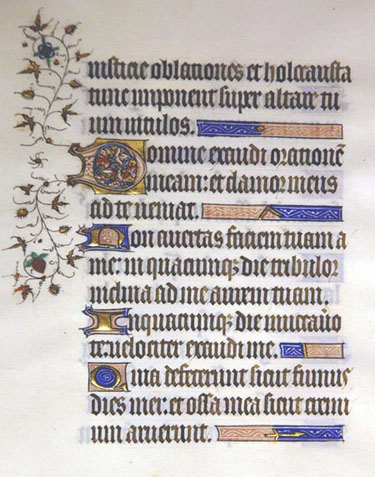 iusticie oblationes et holocausta
tunc imponent super altare tu
um vitulos.
Domine exaudi orationē
meam: et clamor meus
ad te ueniat.
Non auertas faciem tuam a
me: in quacunqꝫ die tribulor
inclina ad me aurem tuam.
In quacunqꝫ die inuocauero
te: uelociter exaudi me.
Quia defecerunt sicut fumus
dies mei: et ossa mea sicut cremi
um aruerunt.